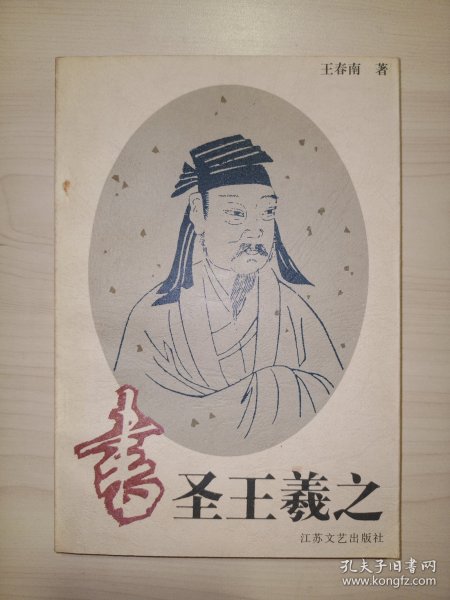 王春南 著
書圣王羲之
江苏文艺出版社
孔夫子旧书网
www.kongfz.com